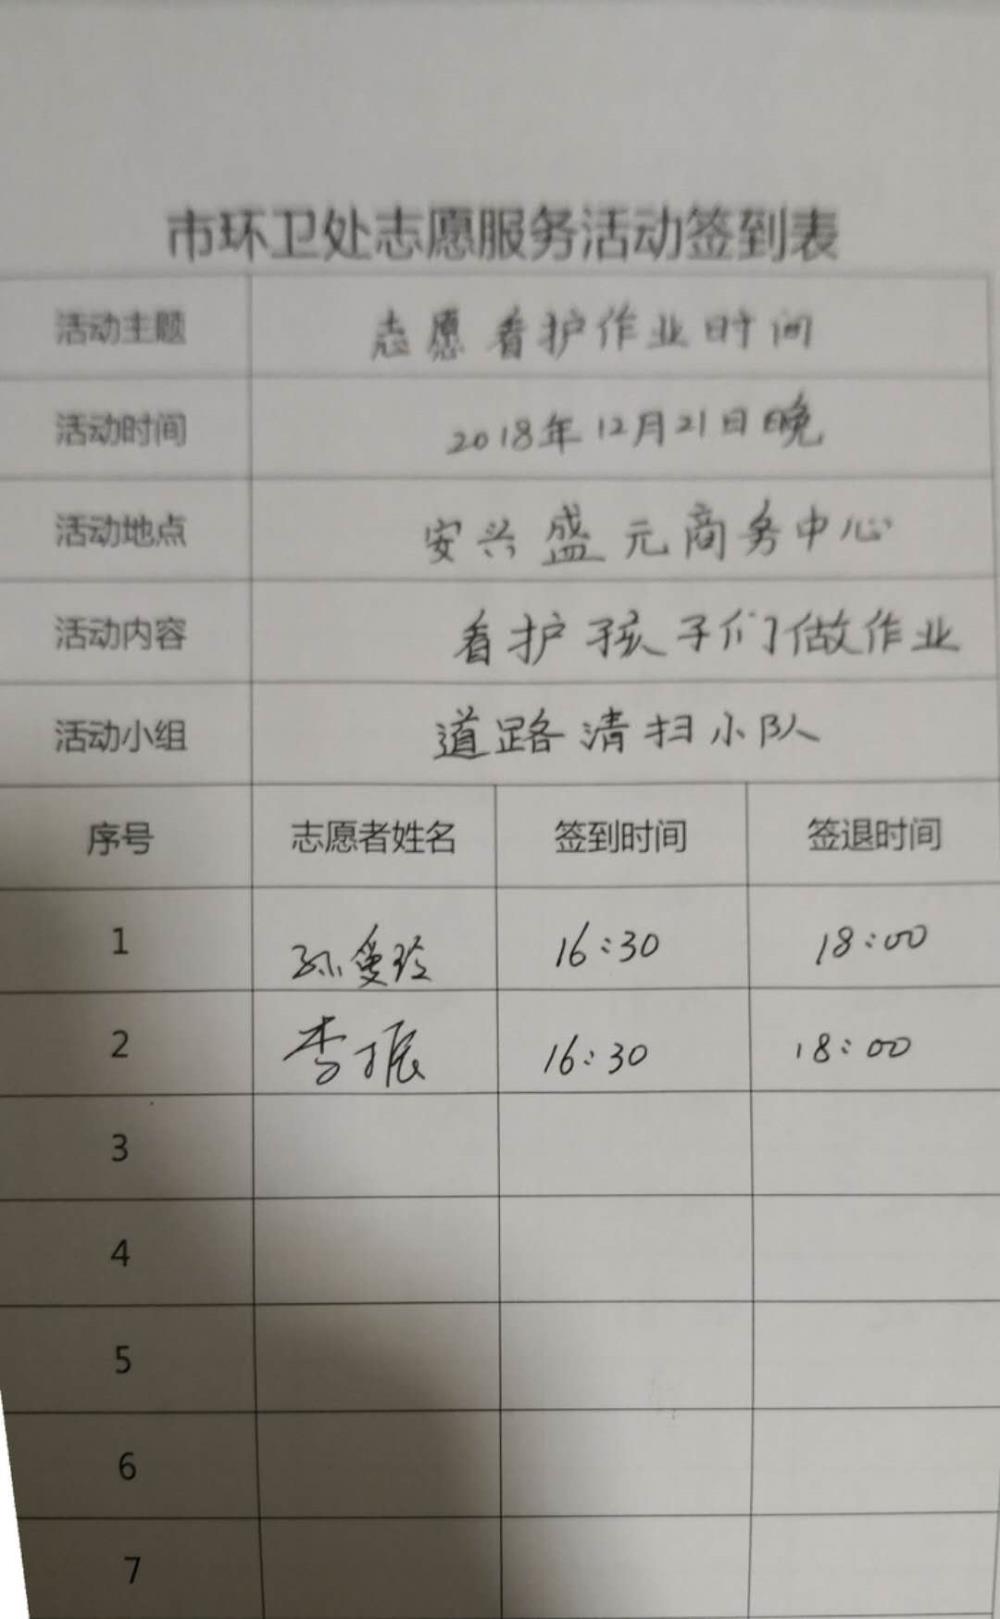 市环卫处志愿服务活动签到表
活动主题 志愿看护作业时间
活动时间 2018年12月21日晚
活动地点 安兴盛元商务中心
活动内容 看护孩子们做作业
活动小组 道路清扫小队
序号 志愿者姓名 签到时间 签退时间
1 孙爱玲 16:30 18:00
2 李振 16:30 18:00
3
4
5
6
7